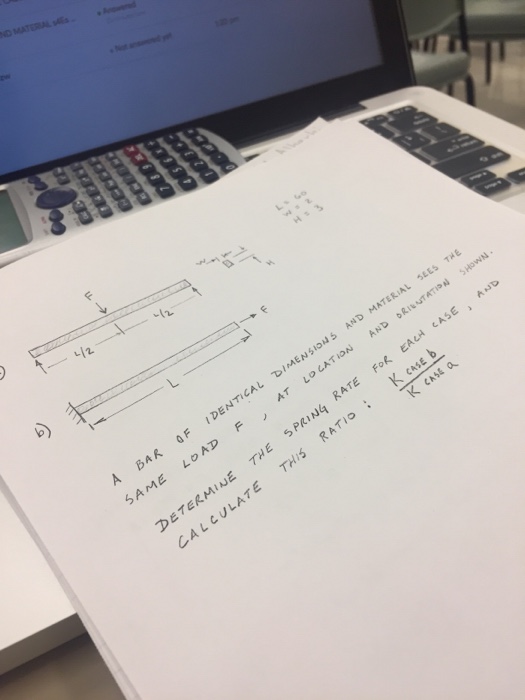 Answered
Not answered yet
L = 60
W = 2
H = 3
W
H
F
L/2
L/2
b)
F
L
A BAR OF IDENTICAL DIMENSIONS AND MATERIAL SEES THE
SAME LOAD F, AT LOCATION AND ORIENTATION SHOWN.
DETERMINE THE SPRING RATE FOR EACH CASE, AND
CALCULATE THIS RATIO:
K CASE b
K CASE a